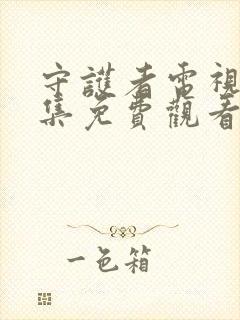 守護者電視
集免費觀看
一色箱